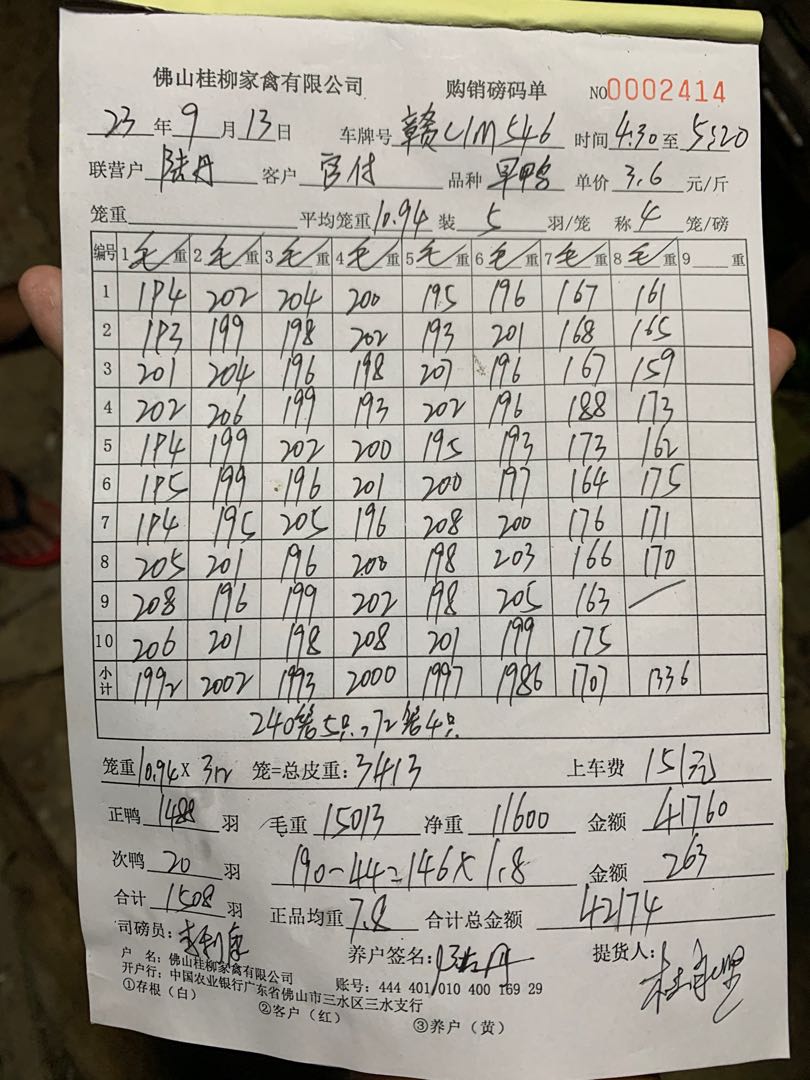 佛山桂柳家禽有限公司 购销磅码单 NO0002414
23年9月13日 车牌号 赣C1M546 时间4:30至5:20
联营户 陆丹 客户 官付 品种 旱鸭 单价 3.6 元/斤
笼重 平均笼重10.94装 5 羽/笼 称4 笼/磅
编号 1毛重 2毛重 3毛重 4毛重 5毛重 6毛重 7毛重 8毛重 9 重
1 194 202 204 200 195 196 167 161
2 193 199 198 202 193 201 168 165
3 201 204 196 198 207 196 167 159
4 202 206 199 193 202 196 188 173
5 194 199 202 200 195 193 173 162
6 195 199 196 201 200 197 164 175
7 194 195 205 196 208 200 176 171
8 205 201 196 200 198 203 166 170
9 208 196 199 202 198 205 163 /
10 206 201 198 208 201 199 175
小计 1992 2002 1993 2000 1997 1986 1707 1336
240笼5只,72笼4只
笼重10.94×312 笼=总皮重:3413 上车费 151元
正鸭 1488 羽 毛重 15013 净重 11600 金额 41760
次鸭 20 羽 190-44=146×1.8 金额 263
合计 1508 羽 正品均重 7.8 合计总金额 42174
司磅员: 养户签名: 陆丹 提货人:
户 名: 佛山桂柳家禽有限公司
开户行: 中国农业银行广东省佛山市三水区三水支行 账号: 444 401 010 400 169 29
①存根(白) ②客户(红) ③养户(黄)